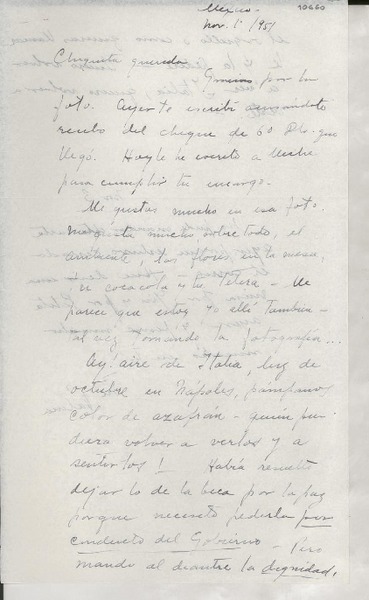 10660
México
Nov. 1º 1951
Chiquita querida
Gracias por la
foto. Ayer te escribí mandándote
recibo del cheque de 60 Dls. que
llegó. Hoy le escribo a
para cumplir tu encargo.
Me gustas mucho en esa foto.
Me gusta mucho sobre todo, el
ambiente, las flores en la mesa,
la cococola, la tetera – Me
parece que estoy yo allí también –
tal vez tomando la fotografía...
Ay! aire de Italia, luz de
octubre en Nápoles, pámpanos
color de azafrán – quién pu-
diera volver a verlos y a
sentirlos! Había resuelto
dejar lo de la beca por la paz
porque necesito pedirla por
conducto del Gobierno – Pero
mando al diantre la dignidad,